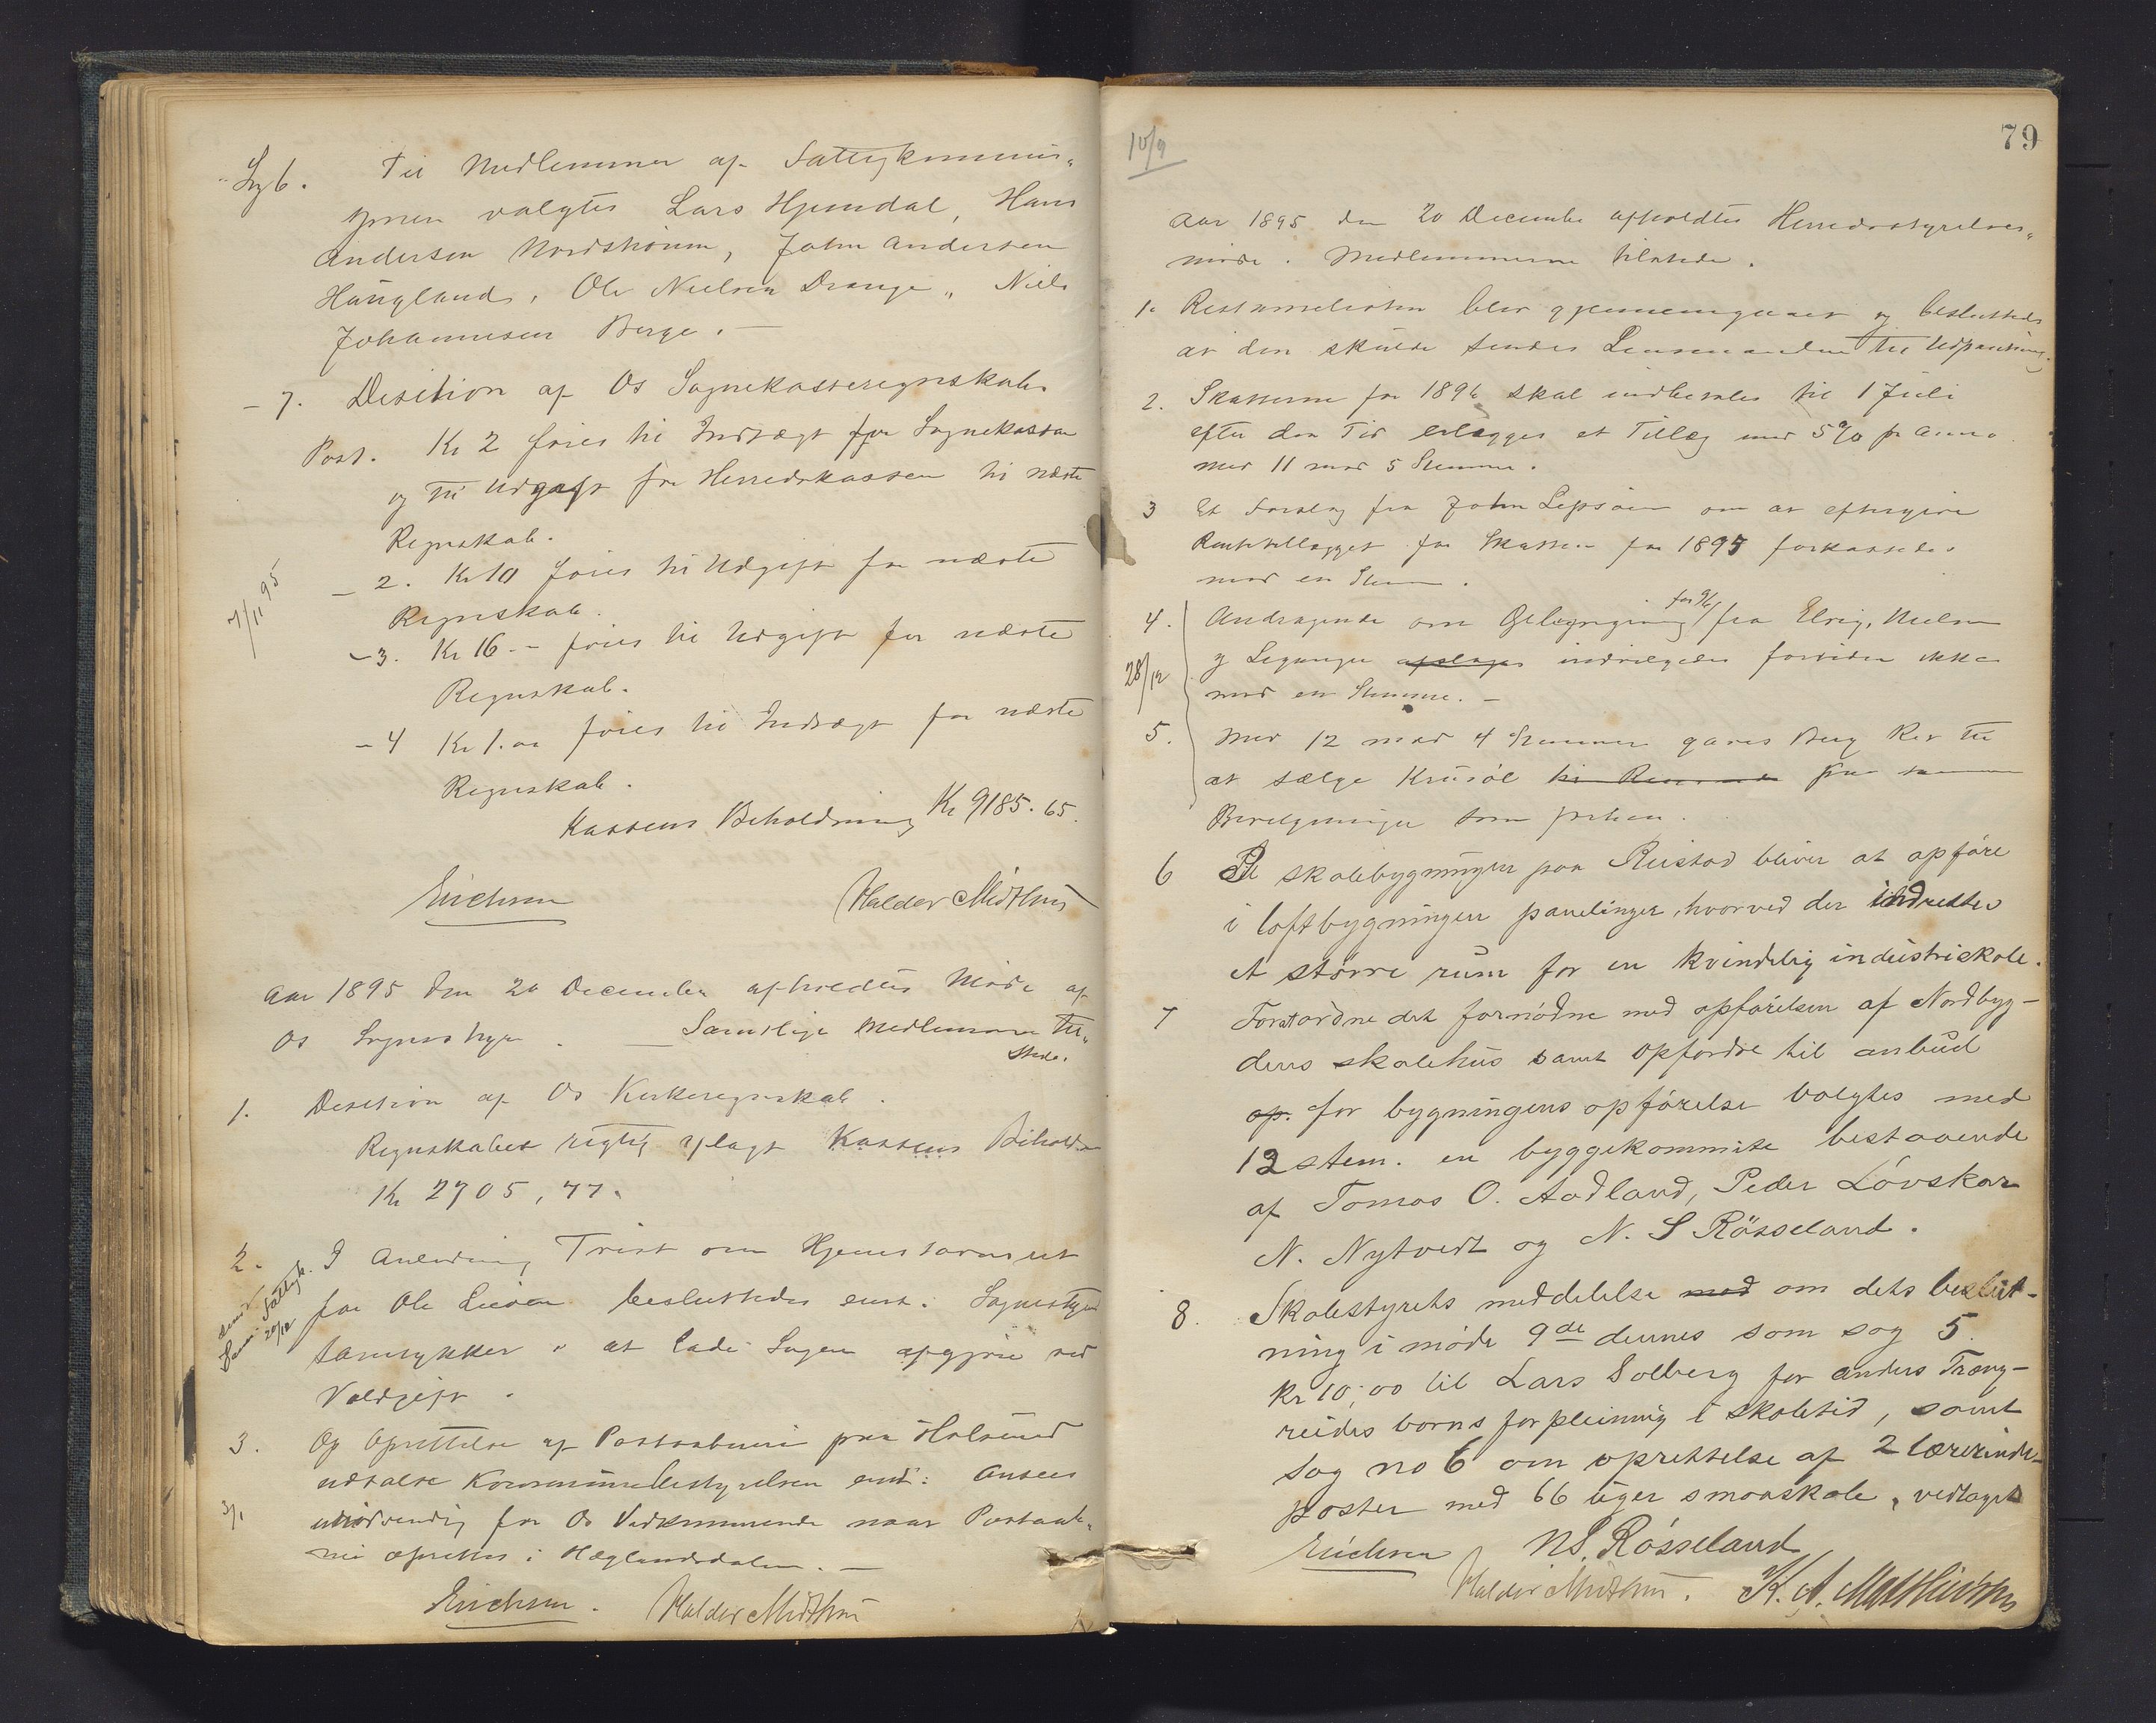 Sag 6. Til Medlemmer af Fattigkommis„
ionen valgtes Lars Hjemdal, Hans
Andersen Nordstrønen, John Andersen
Haugland, Ole Nielsen Drange „ Niels
Johannesen Berge. —
– 7. Desition af Os Sognekasseregnskab.
Post. Kr 2 føies til Indtægt for Sognekassen
og til Udgift for Herredskassen til næste
Regnskab.
– 2. Kr 10 føies til Udgift for næste
Regnskab.
7/11 95
– 3. Kr 16 -- føies til Udgift for næste
Regnskab.
– 4 Kr 1.00 føies til Indtægt for næste
Regnskab.
Kassens Beholdning Kr 9185.65.
Erichsen Haldor Midthus
Aar 1895 den 20 December afholdtes Møde af
Os Sognestyre. — Samtlige Medlemmer til„
stede.
1. Desition af Os Kirkeregnskab.
Regnskabet rigtig aflagt Kassens Behold
Kr 2705,77.
2. I Anledning Trist om Hjemstavnsret
for Ole besluttedes enst: Sognestyret
20/12
samtykker i at lade Sagen afgjøre ved
Voldgift.
3. Op Oprettelse af Postaabneri paa Holsund
udtalte Kommunebestyrelsen enst: Ansees
3/1
unødvendig for Os Vedkommende naar Postaab„
neri oprettes i Hæglandsdalen. —
Erichsen. Haldor Midthus
10/9
79
Aar 1895 den 20 December afholdtes Herredsstyrelses„
møde. Medlemmerne tilstede.
1. Restancelisten blev gjennemgaaet og besluttedes
at den skulde sendes Lensmanden til Udpantning.
2. Skatterne for 1896 skal indbetales til 1 Juli
efter den Tid erlægges et Tillæg med 5% pr anno
med 11 mod 5 Stemmer.
3 Et Forslag fra John Lepsøen om at eftergive
Rentetillægget for Skatten for 1895 forkastedes
mod en Stemme.
4. Andragende om Ølbevilgning for 96 fra Elvig, Nielsen
og afslages indvilgedes forsiden ikke
28/12
mod en Stemme. —
5. Med 12 mod 4 Stemmer gaves Berg Ret til
at sælge Krusøl paa samme
Bevilgninger som forhen.
6 På skolebygningen paa Reistad bliver at opføre
i loftbygningen panelinger, hvorved der indrettes
et större rum for en kvindelig industriskole.
7 Foratordne det fornødne med opførelsen af Nordbyg-
dens skolehus samt opfordre til anbud
op. for bygningens opførelse valgtes med
12 stem. en byggekommite bestaaende
af Tomas O. Aadland, Peder Løvskar
N. Nytvedt og N. S Røsseland.
8. Skolestyrets meddelelse med om dets beslut-
ning i møde 9de dennes som sag 5
Kr 10,00 til Lars Solberg for anders Træng-
reides barns forpleining i skoletid, samt
sag no 6 om oprettelse af 2 lærerinde-
poster med 66 uger smaaskole, vedtages
Erichsen N.S. Røsseland
Haldor Midthus. K. A.